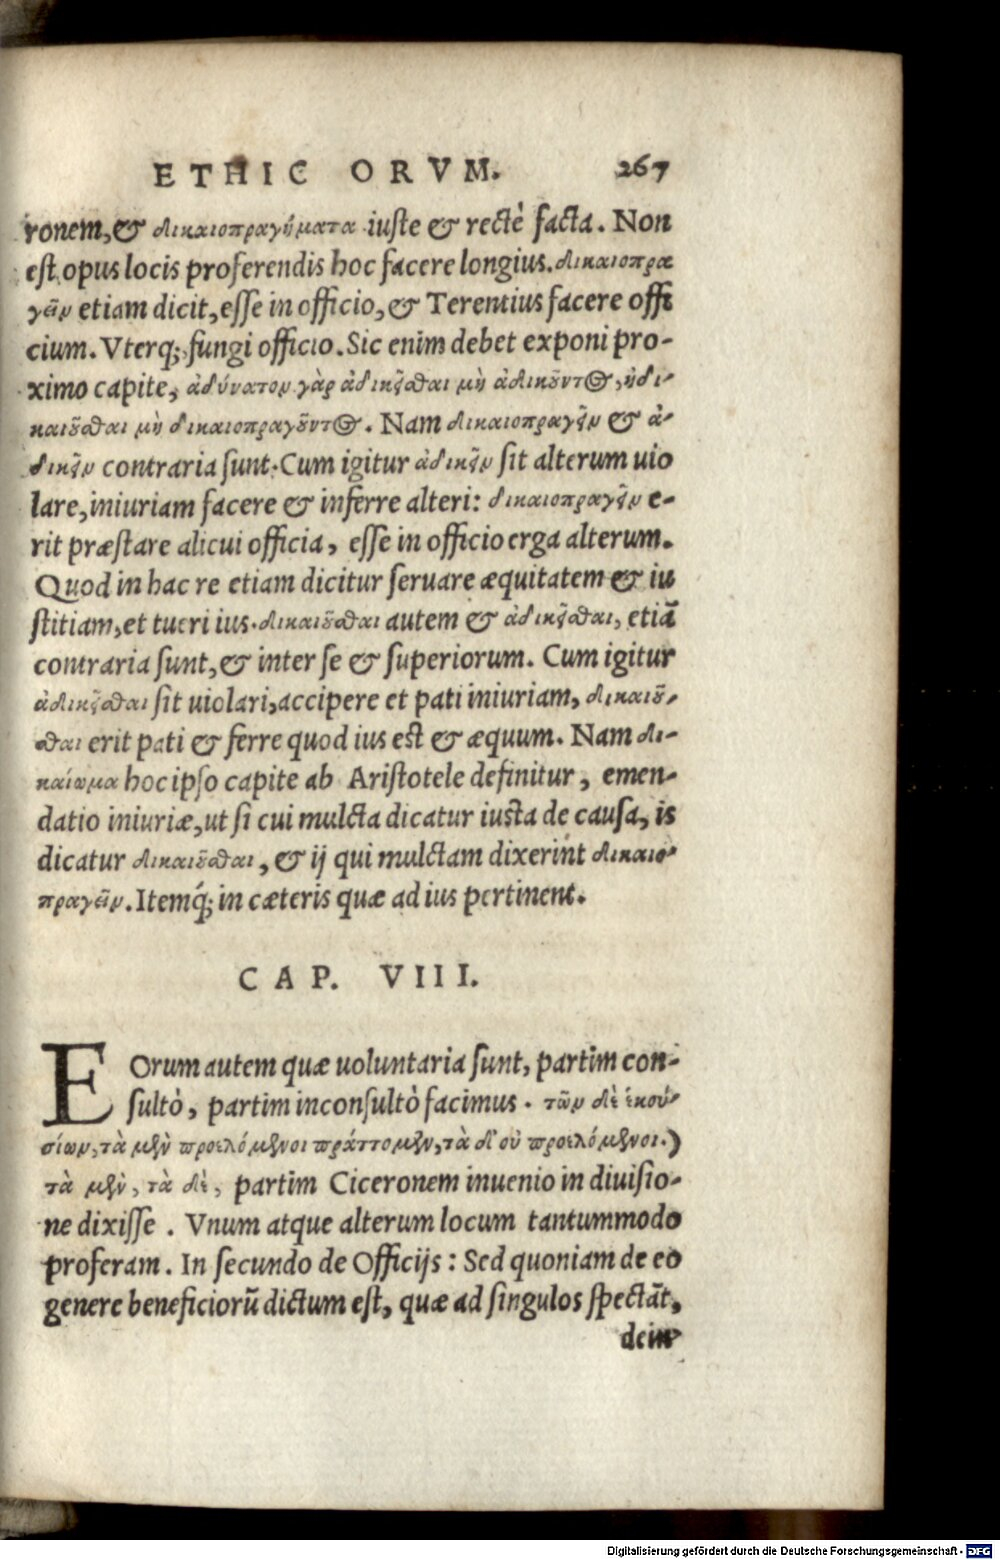 ETHIC ORVM. 267
ronem, & δικαιοπραγήματα iuste & rectè facta. Non
est opus locis proferendis hoc facere longius. δικαιοπρα
γεῖν etiam dicit, esse in officio, & Terentius facere offi
cium. Vterq; fungi officio. Sic enim debet exponi pro-
ximo capite, ἀδύνατον γὰρ ἀδικεῖσθαι μὴ ἀδικοῦντος, ἢ δι-
καιοῦσθαι μὴ δικαιοπραγοῦντος. Nam δικαιοπραγεῖν & ἀ-
δικεῖν contraria sunt. Cum igitur ἀδικεῖν sit alterum uio
lare, iniuriam facere & inferre alteri: δικαιοπραγεῖν e-
rit præstare alicui officia, esse in officio erga alterum.
Quod in hac re etiam dicitur seruare æquitatem & iu
stitiam, et tueri ius. δικαιοῦσθαι autem & ἀδικεῖσθαι, etiā
contraria sunt, & inter se & superiorum. Cum igitur
ἀδικεῖσθαι sit uiolari, accipere et pati iniuriam, δικαιοῦ-
σθαι erit pati & ferre quod ius est & æquum. Nam δι-
καίωμα hoc ipso capite ab Aristotele definitur, emen-
datio iniuriæ, ut si cui mulcta dicatur iusta de causa, is
dicatur δικαιοῦσθαι, & ij qui mulctam dixerint δικαιο-
πραγεῖν. Itemq́; in cæteris quæ ad ius pertinent.
CAP. VIII.
EOrum autem quæ uoluntaria sunt, partim con-
sultò, partim inconsultò facimus. τῶν δὲ ἑκου-
σίων, τὰ μὲν προελόμενοι πράττομεν, τὰ δ' οὐ προελόμενοι.)
τὰ μὲν, τὰ δὲ, partim Ciceronem inuenio in diuisio-
ne dixisse. Vnum atque alterum locum tantummodo
proferam. In secundo de Officijs: Sed quoniam de eo
genere beneficiorū dictum est, quæ ad singulos spectāt,
dein-
Digitalisierung gefördert durch die Deutsche Forschungsgemeinschaft - DFG